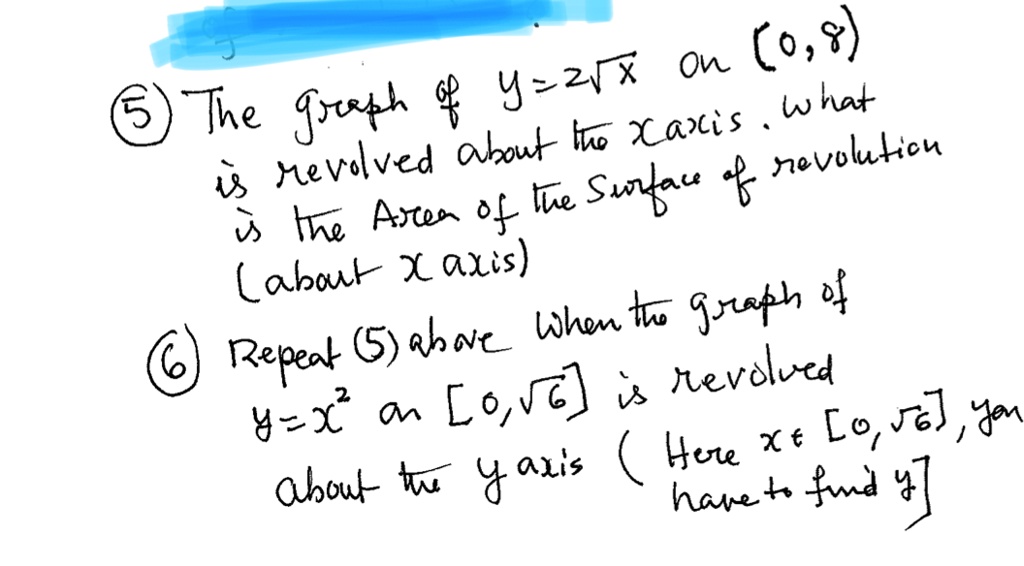 (5) The graph of y=2√x on [0,8)
is revolved about the x axis. What
is the Area of the Surface of revolution
(about x axis)
(6) Repeat (5) above when the graph of
y=x² on [0,√6] is revolved
about the y axis ( Here x ϵ [0,√6], you
have to find y]